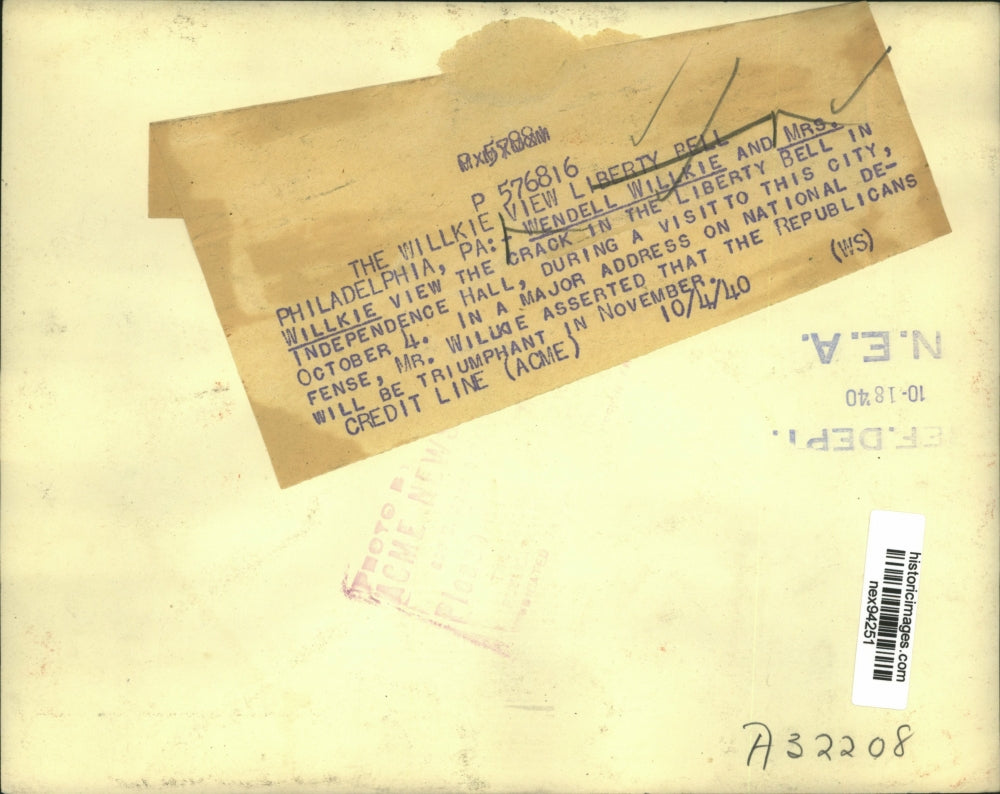 P 576816
THE WILLKIE VIEW LIBERTY BELL
PHILADELPHIA, PA: WENDELL WILLKIE AND MRS.
WILLKIE VIEW THE CRACK IN THE LIBERTY BELL IN
INDEPENDENCE HALL, DURING A VISIT TO THIS CITY,
OCTOBER 4. IN A MAJOR ADDRESS ON NATIONAL DE-
FENSE, MR. WILLKIE ASSERTED THAT THE REPUBLICANS
WILL BE TRIUMPHANT IN NOVEMBER.
CREDIT LINE (ACME) 10/4/40 (WS)
N.E.A.
10-18 40
EF.DEPT.
PHOTO B
ACME NEW
historicimages.com
nex94251
A32208